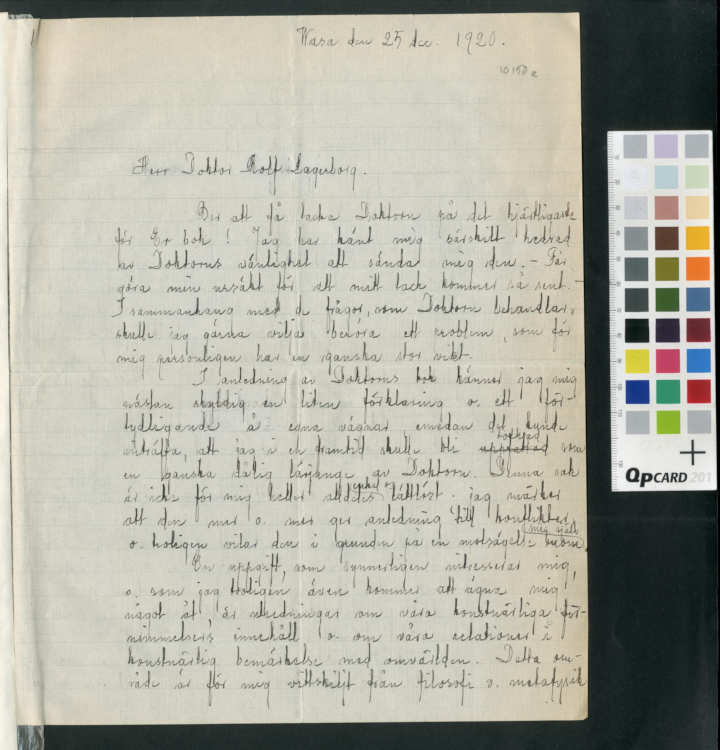 Wasa den 25 dec. 1920.
10150 a
Herr Doktor Rolf Lagerborg.
Ber att få tacka Doktorn på det hjärtligaste
för Er bok! Jag har känt mig särskilt hedrad
av Doktorns vänlighet att sända mig den. – Får
göra min ursäkt för att mitt tack kommer så sent. –
I sammanhang med de frågor, som Doktorn behandlar,
skulle jag gärna vilja beröra ett problem, som för
mig personligen har en ganska stor vikt.
I anledning av Doktorns bok känner jag mig
nästan skyldig en liten förklaring o. ett för-
tydligande å egna vägnar, emedan det kunde
inträffa, att jag i en framtid skulle bli uppfattad vara
en ganska dålig lärjunge av Doktorn. Denna sak
är icke för mig heller alldeles enkel o. lättlöst. jag märker
att den mer o. mer ger anledning till konflikter
o. troligen vilar den i grunden på en motsägelse inom mig själv.
En uppgift, som synnerligen intresserar mig,
o. som jag troligen även kommer att ägna mig
något åt, är utredningar om våra konstnärliga för-
nimmelsers innehåll o. om våra relationer i
konstnärlig bemärkelse med omvärlden. Detta om-
råde är för mig vittskilt från filosofi o. metafysik
QPCARD 201